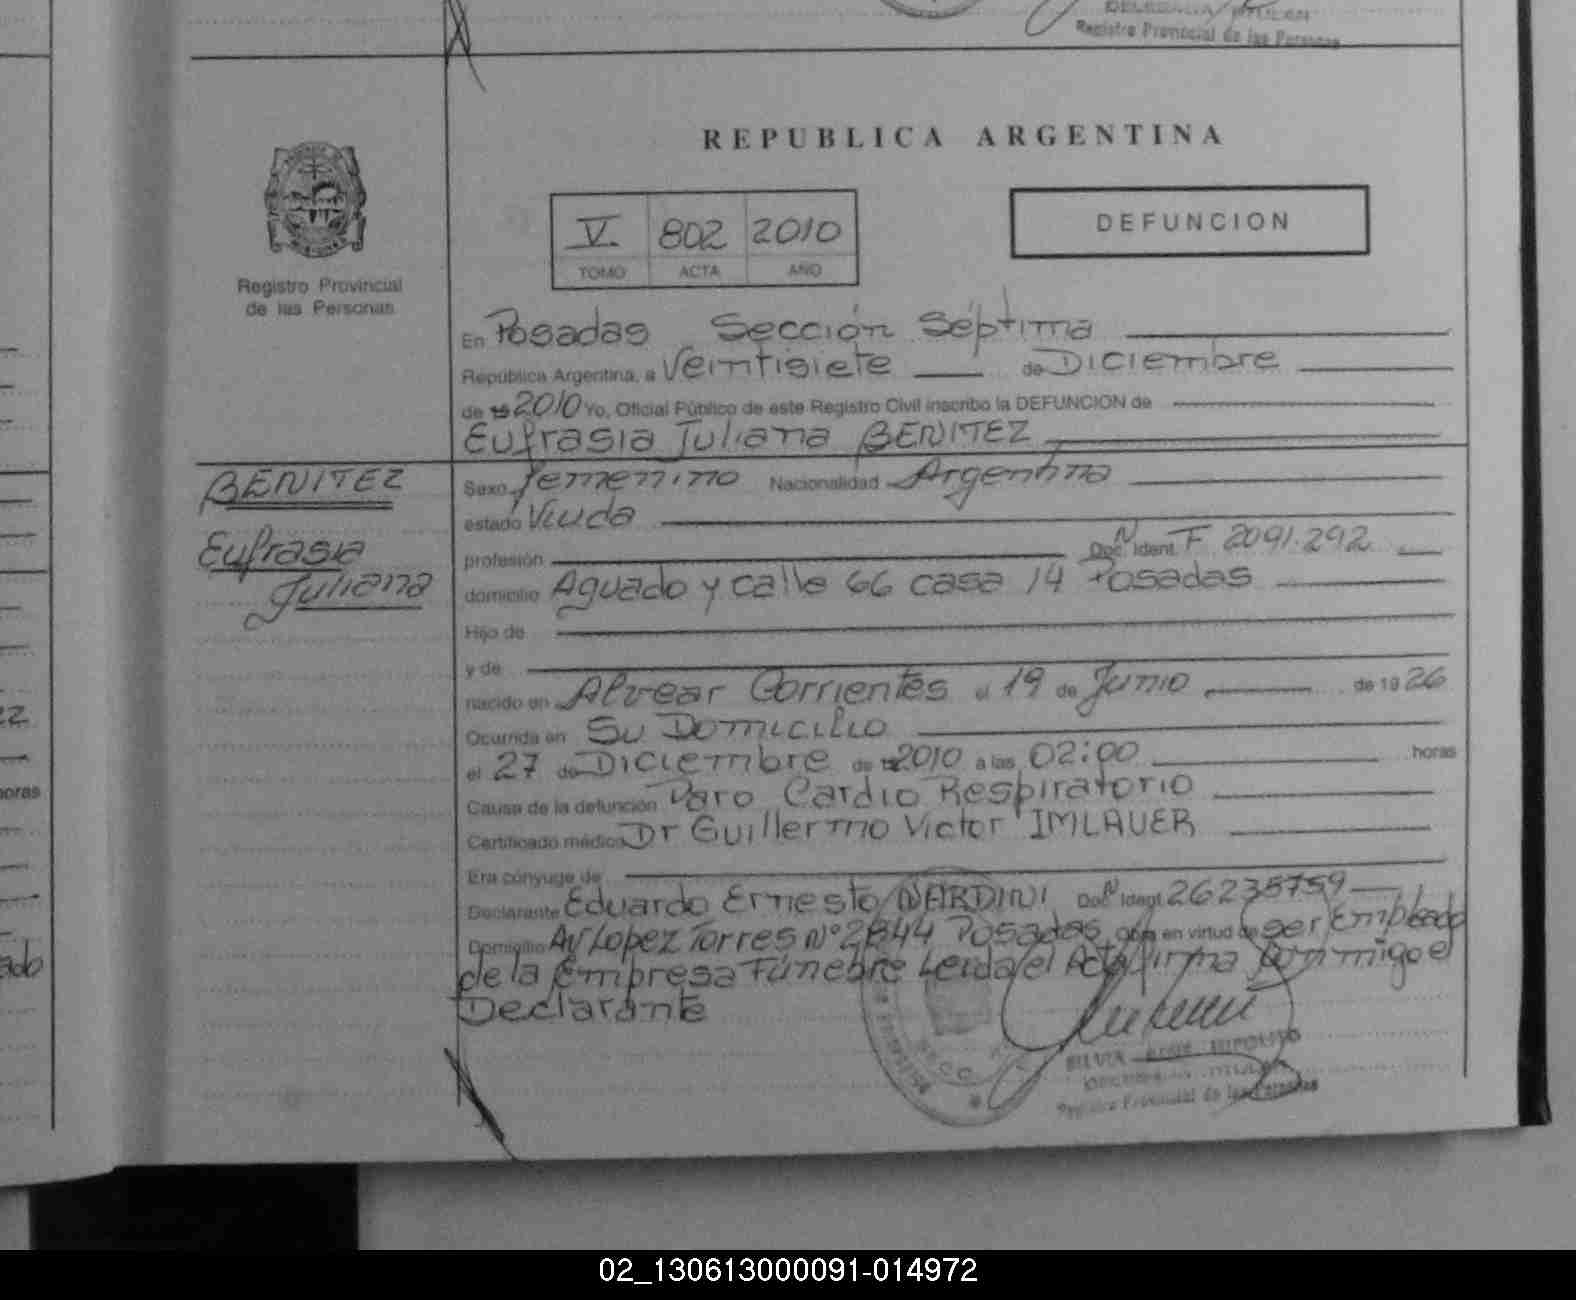 Registro Provincial de las Personas
REPUBLICA ARGENTINA
V. 802 2010
TOMO ACTA AÑO
DEFUNCION
Registro Provincial
de las Personas
En Posadas Sección Séptima
República Argentina, a Veintisiete de Diciembre
de 19 2010 Yo, Oficial Público de este Registro Civil inscribo la DEFUNCION de
Eufrasia Juliana BENITEZ
BENITEZ
Eufrasia
Juliana
Sexo Femenino Nacionalidad Argentina
estado Viuda
profesión Doc. Ident. F 2091.292
domicilio Aguado y calle 66 casa 14 Posadas
Hijo de
y de
nacido en Alvear Corrientes el 19 de Junio de 19 26
Ocurrida en Su Domicilio
el 27 de Diciembre de 19 2010 a las 02:00 horas
Causa de la defunción Paro Cardio Respiratorio
Certificado médico Dr Guillermo Victor IMLAUER
Era cónyuge de
Declarante Eduardo Ernesto NARDINI Doc. Ident. 26235759
Domicilio Av Lopez Torres Nº 2844 Posadas obra en virtud de ser Empleado
de la Empresa Fúnebre Leida el Acta firma conmigo el
Declarante
SILVIA HIPOLITO
Registro Provincial de las Personas
oras
ado
02_130613000091-014972